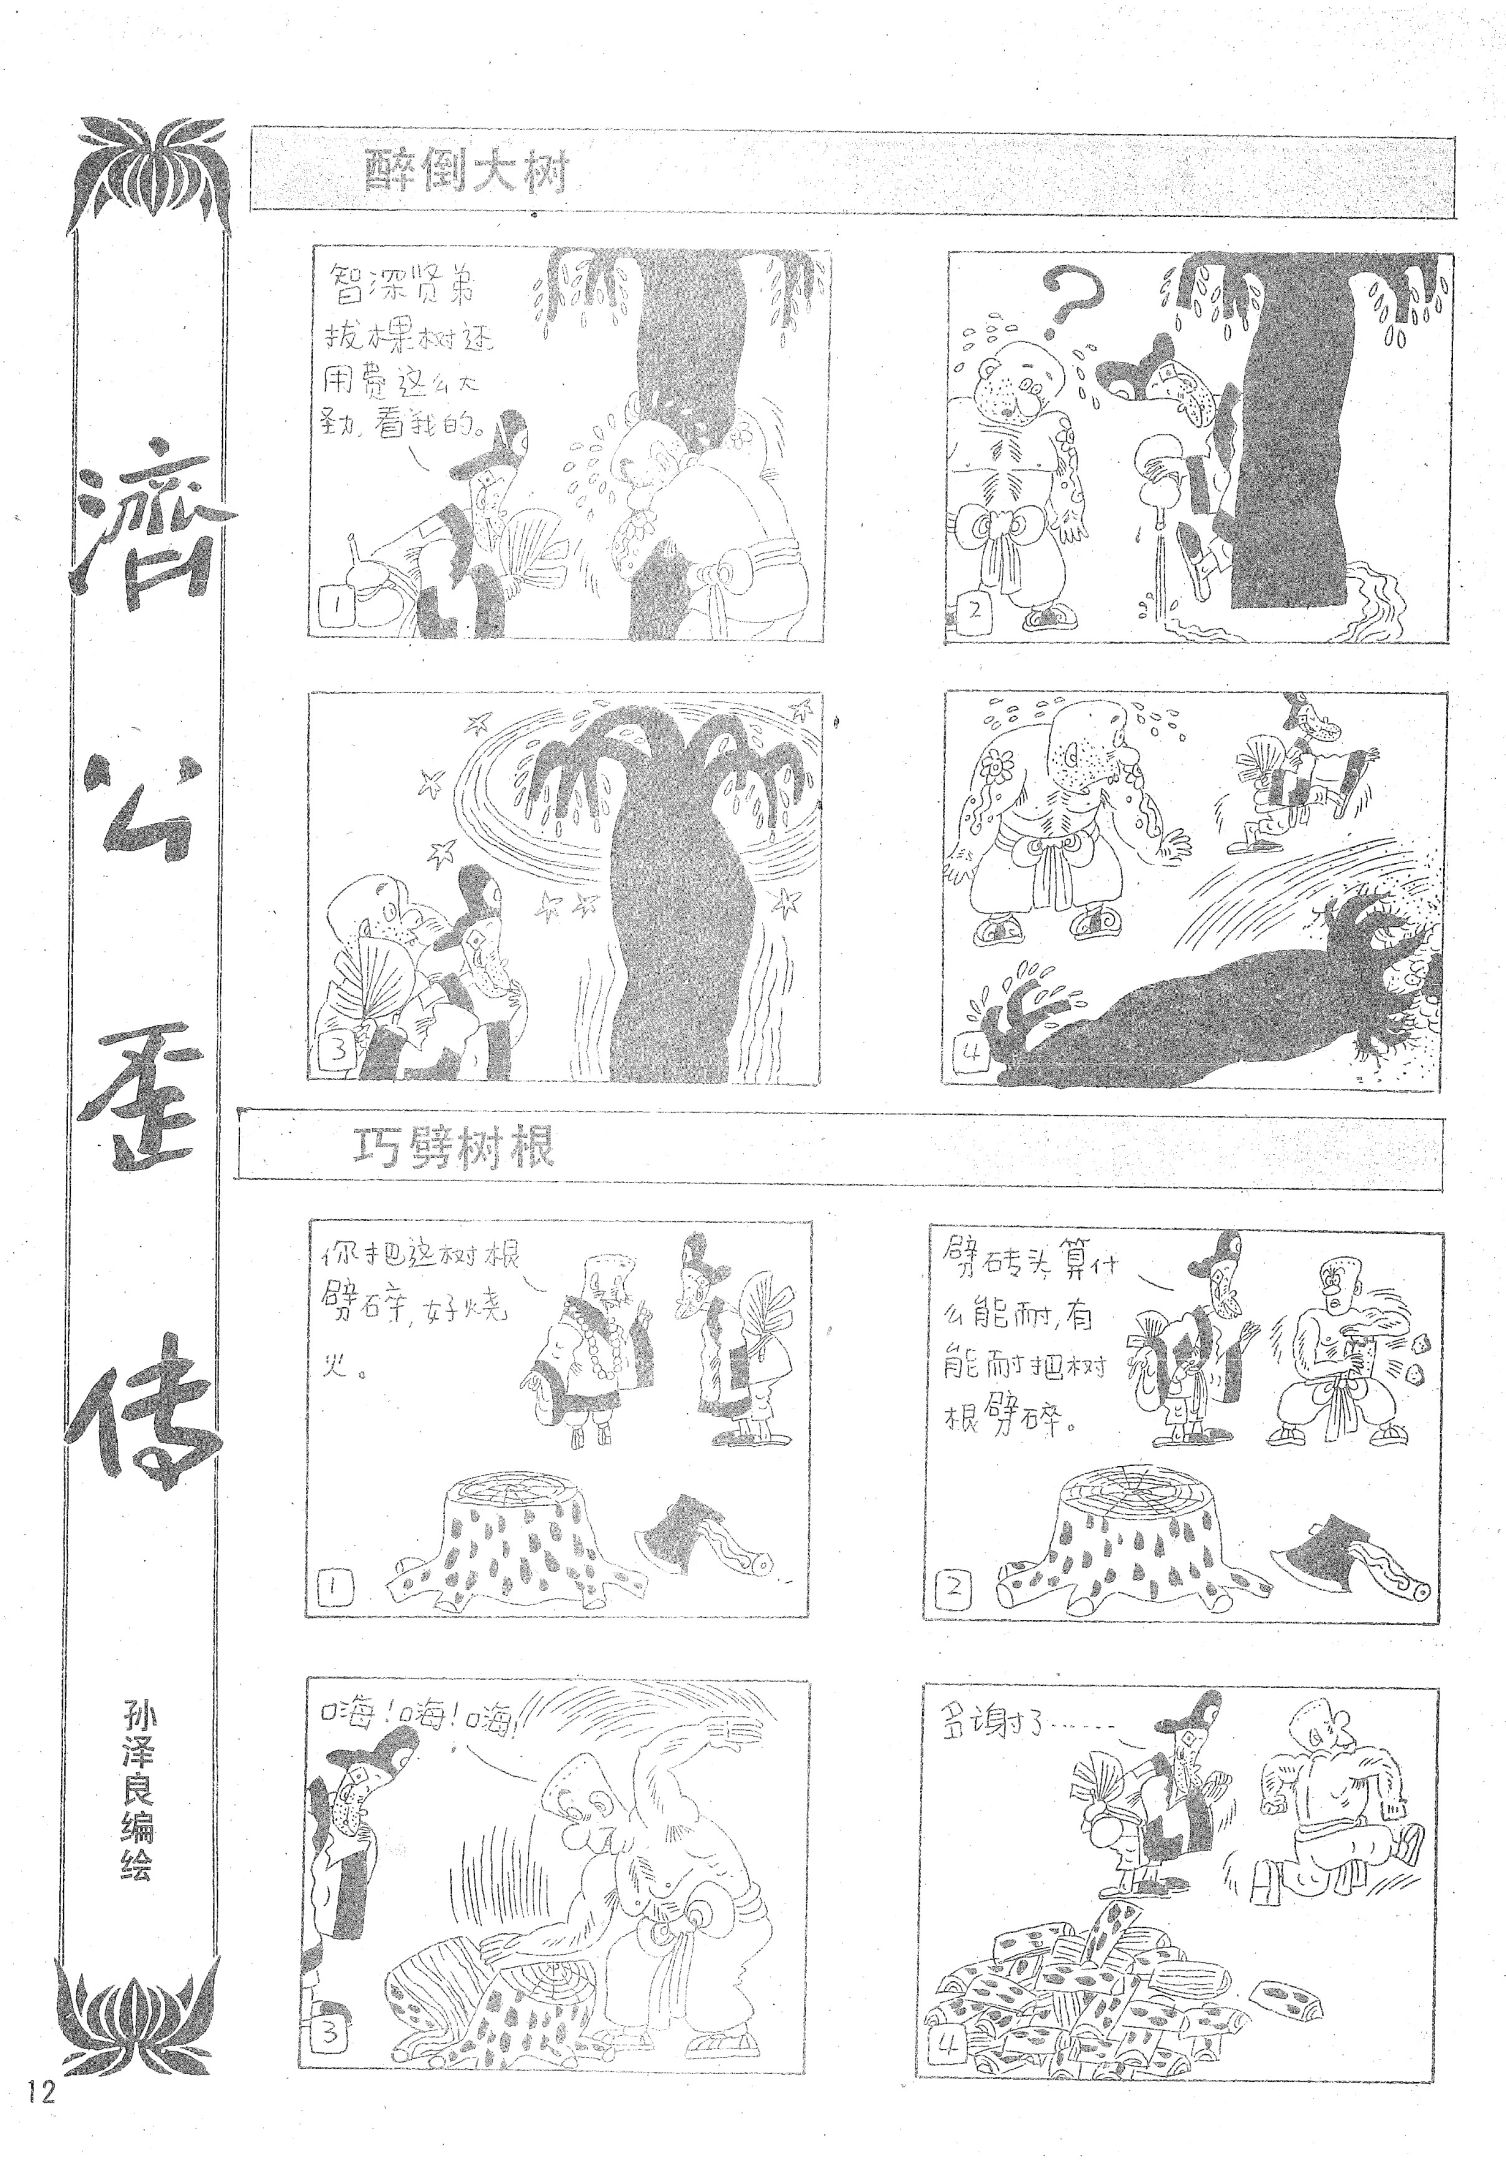 濟公歪传
孙泽良编绘
醉倒大树
智深贤弟
拔棵树还
用费这么大
劲,看我的。
1
?
2
3
4
巧劈树根
你把这树根
劈碎,好烧
火。
1
劈砖头,算什
么能耐,有
能耐把树
根劈碎。
2
嗨!嗨!嗨!
3
多谢了……
4
12